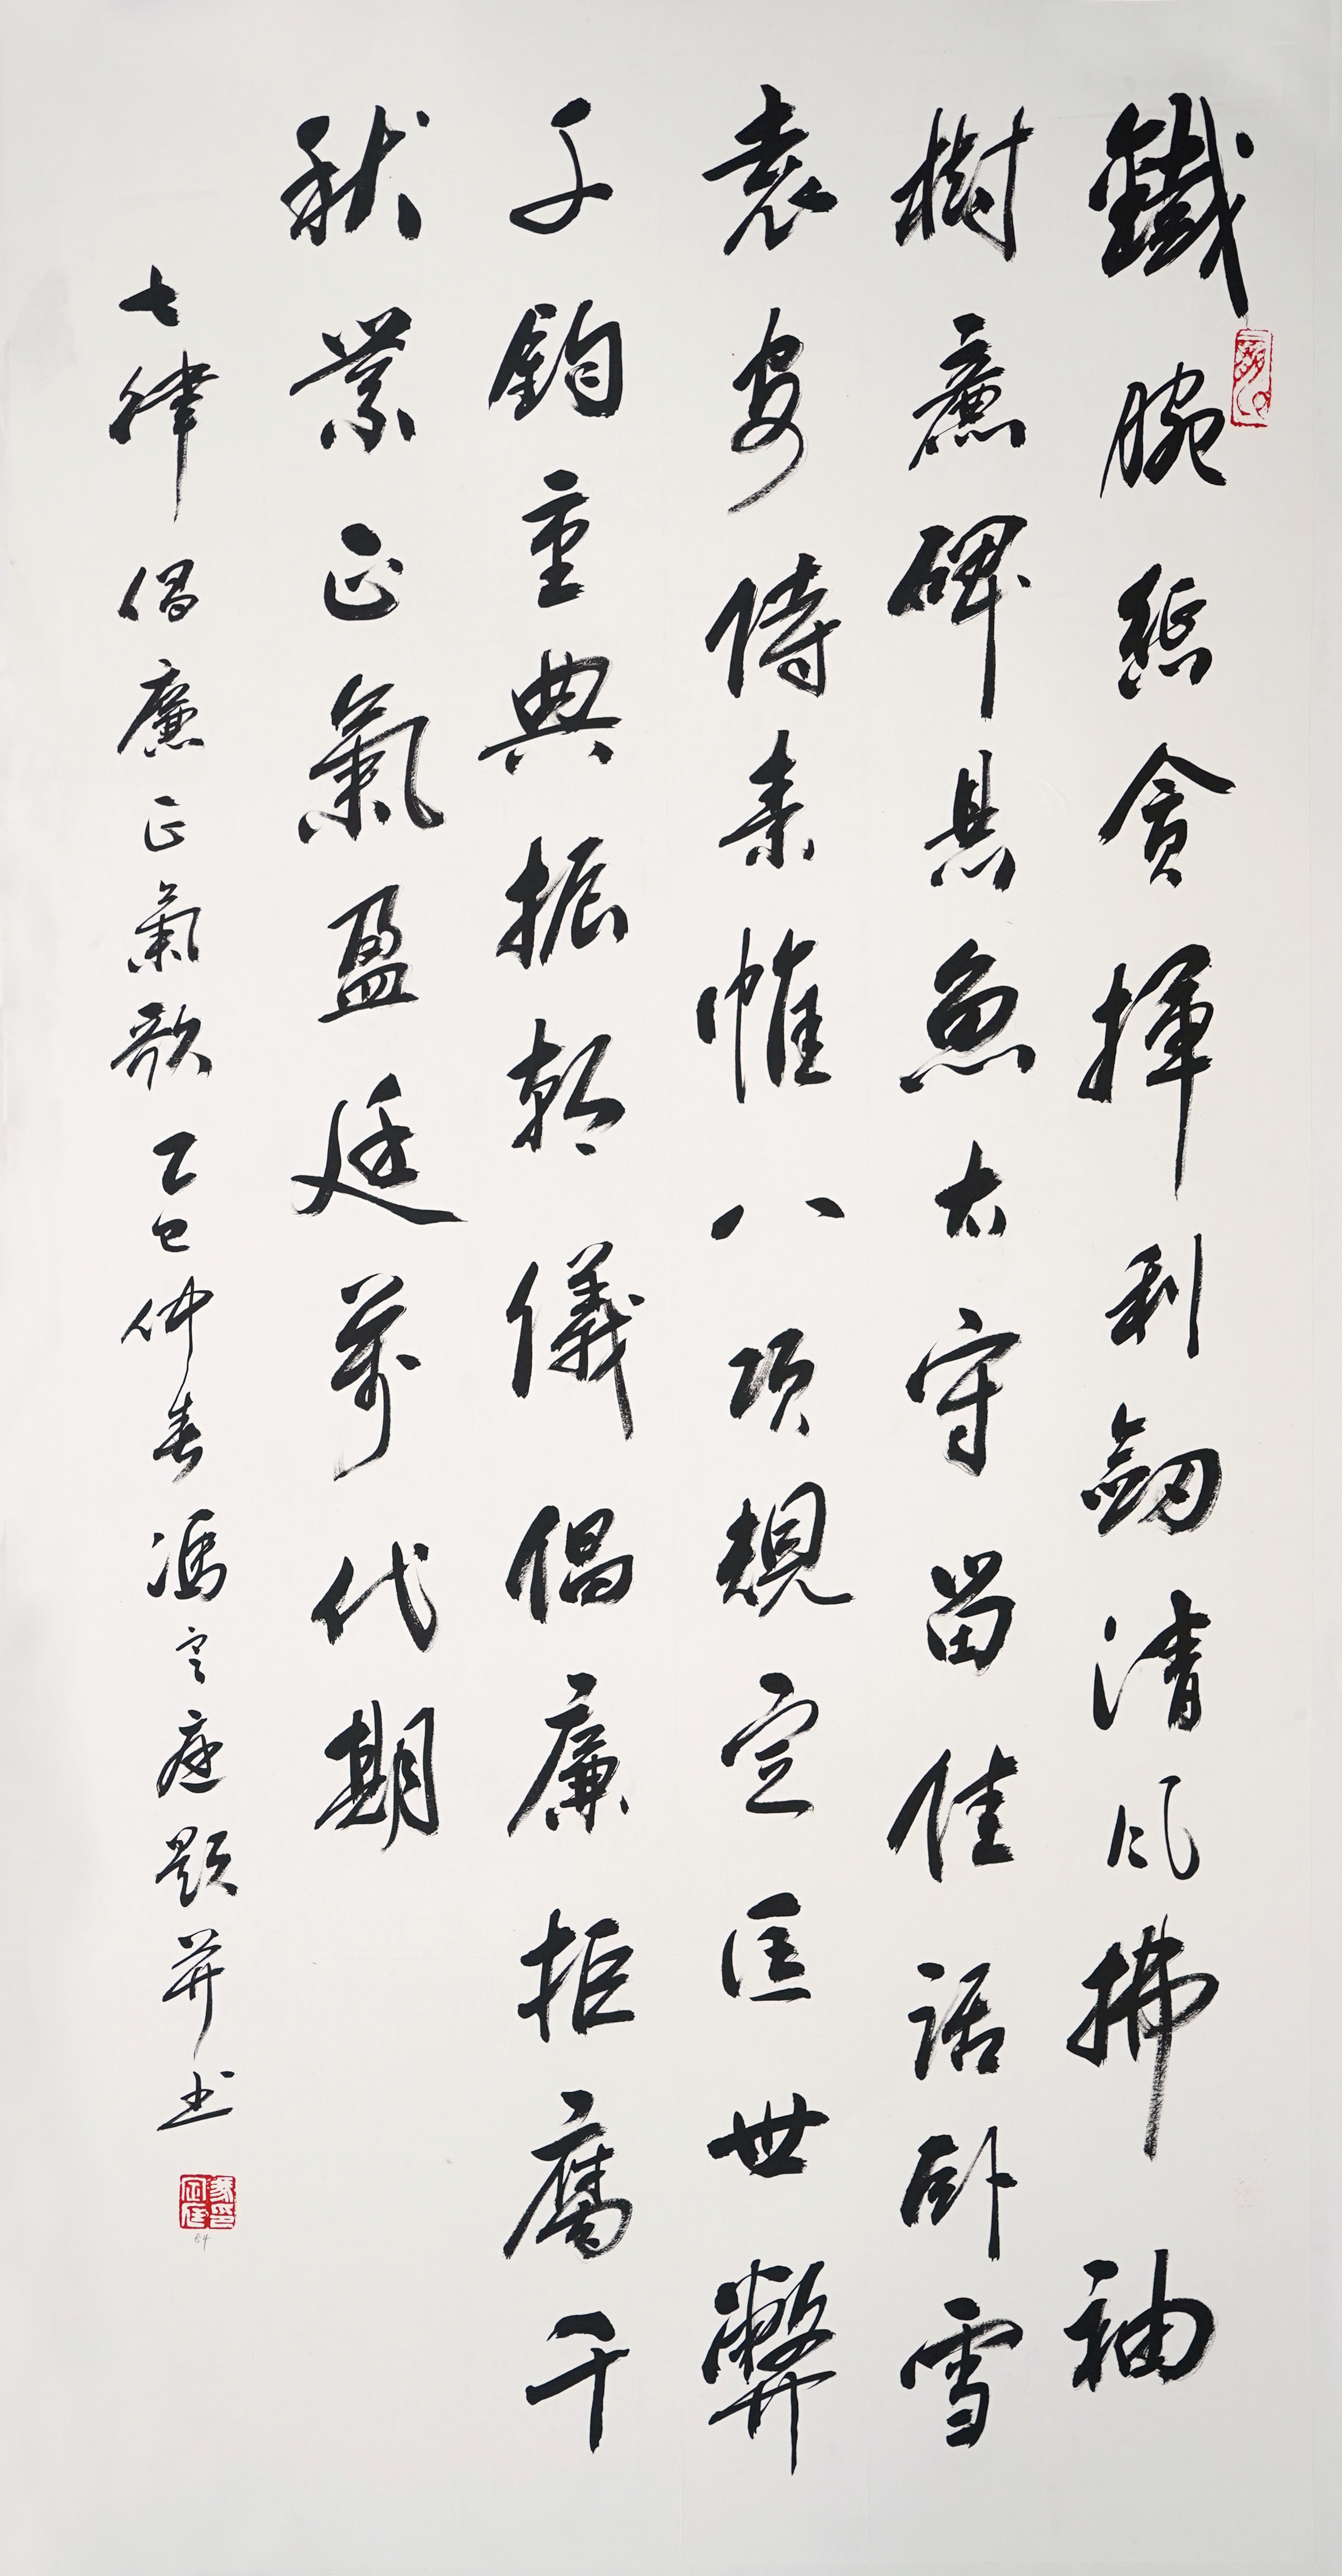 鐵腕懲貪揮利劍清風拂袖
樹廉碑懸魚太守留佳話卧雪
袁安侍素帷八項規定匡世弊
千鈞重典振朝儀倡廉拒腐千
秋業正氣盈廷萬代期
七律倡廉正氣歌乙巳仲春馮定庭題并书